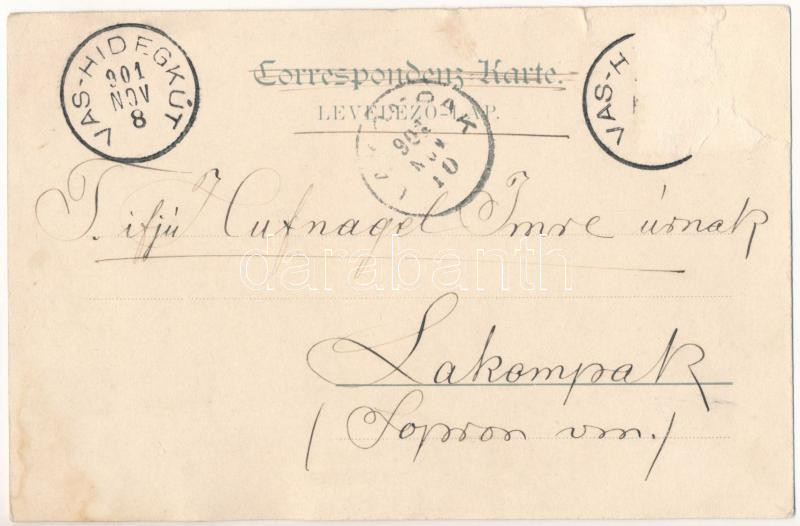 VAS-HIDEGKÚT
901
NOV
8
Correspondenz-Karte.
LEVELEZŐ-LAP.
VAS-H
DAK
901
NOV
10
T. ifjú Hufnagel Imre úrnak
darabanth
Lakompak
(Sopron vm.)